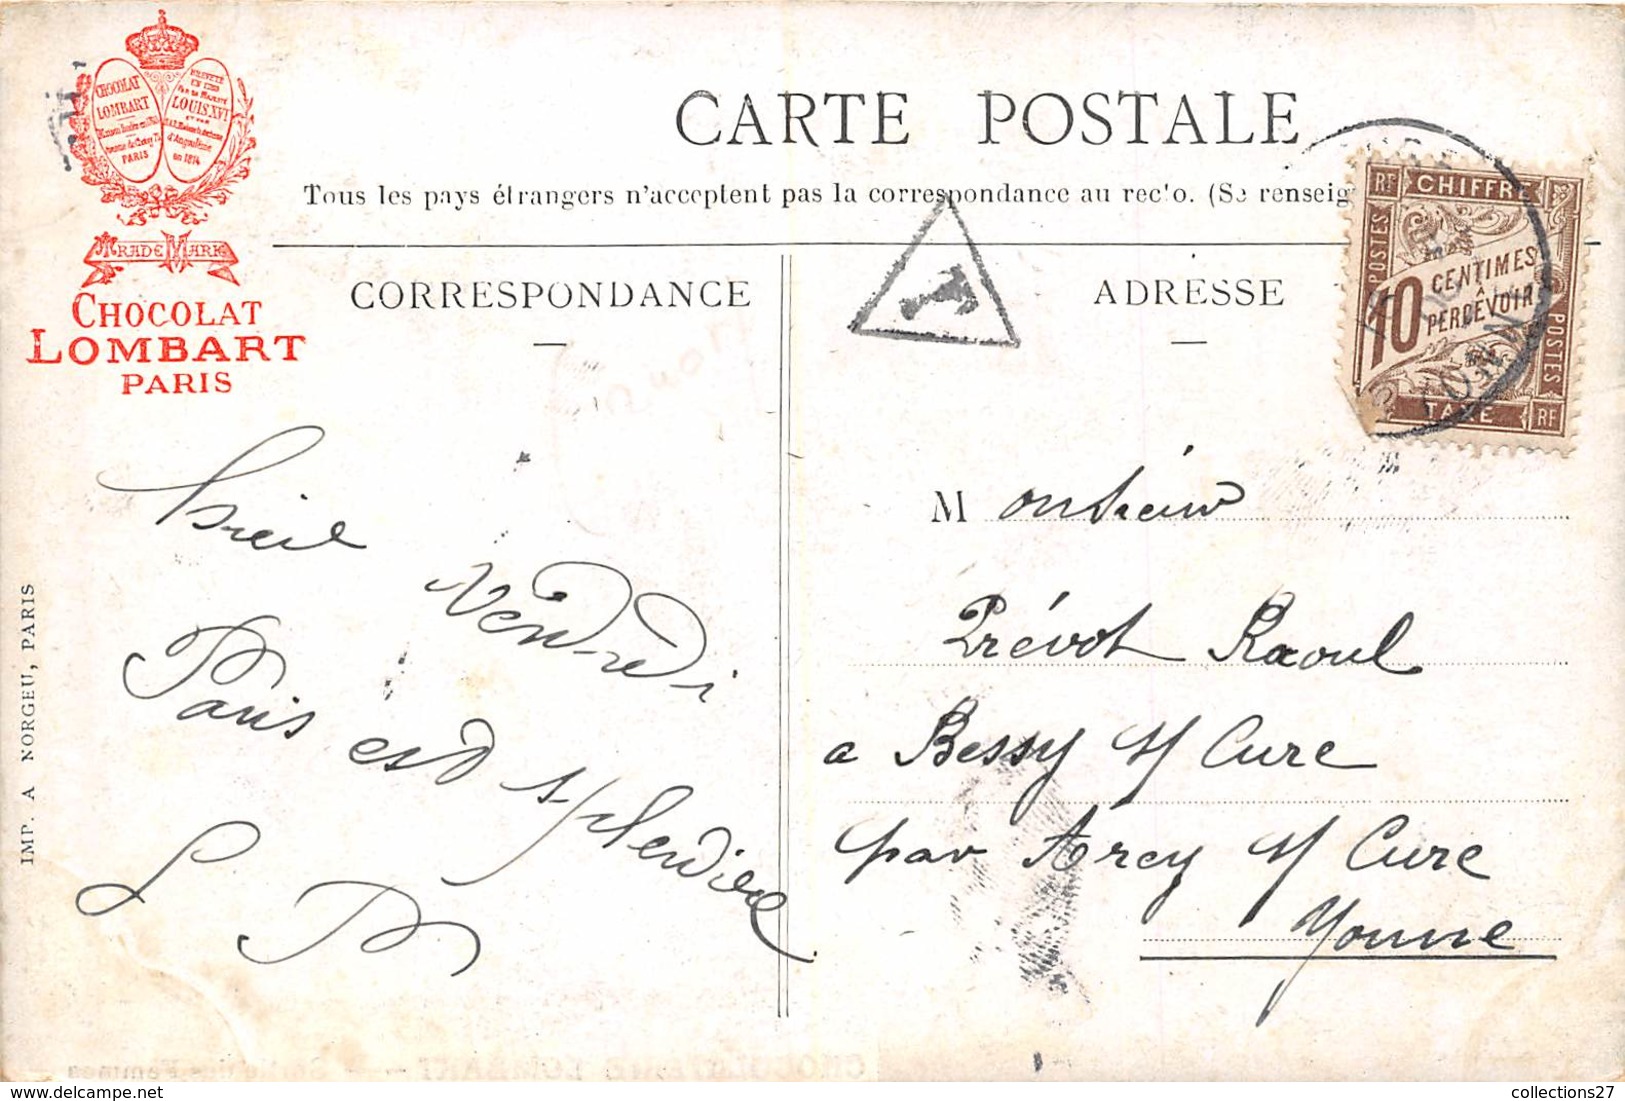 CHOCOLAT
LOMBART
PARIS
BREVETÉ
EN 1760
LOUIS XVI
d'Angoulême
en 1814
TRADE MARK
CHOCOLAT
LOMBART
PARIS
CARTE POSTALE
Tous les pays étrangers n'acceptent pas la correspondance au recto. (Se renseig
CORRESPONDANCE
ADRESSE
T
RF CHIFFRE
POSTES
10 CENTIMES
A
PERCEVOIR
POSTES
TAXE RF
YONNE
Vendredi
Paris est splendide
L P
Monsieur
Prévot Raoul
a Bessy s/ Cure
par Arcy s/ Cure
Yonne
IMP. A NORGEU, PARIS
CHOCOLATERIE LOMBART — Sortie des Femmes
collections27